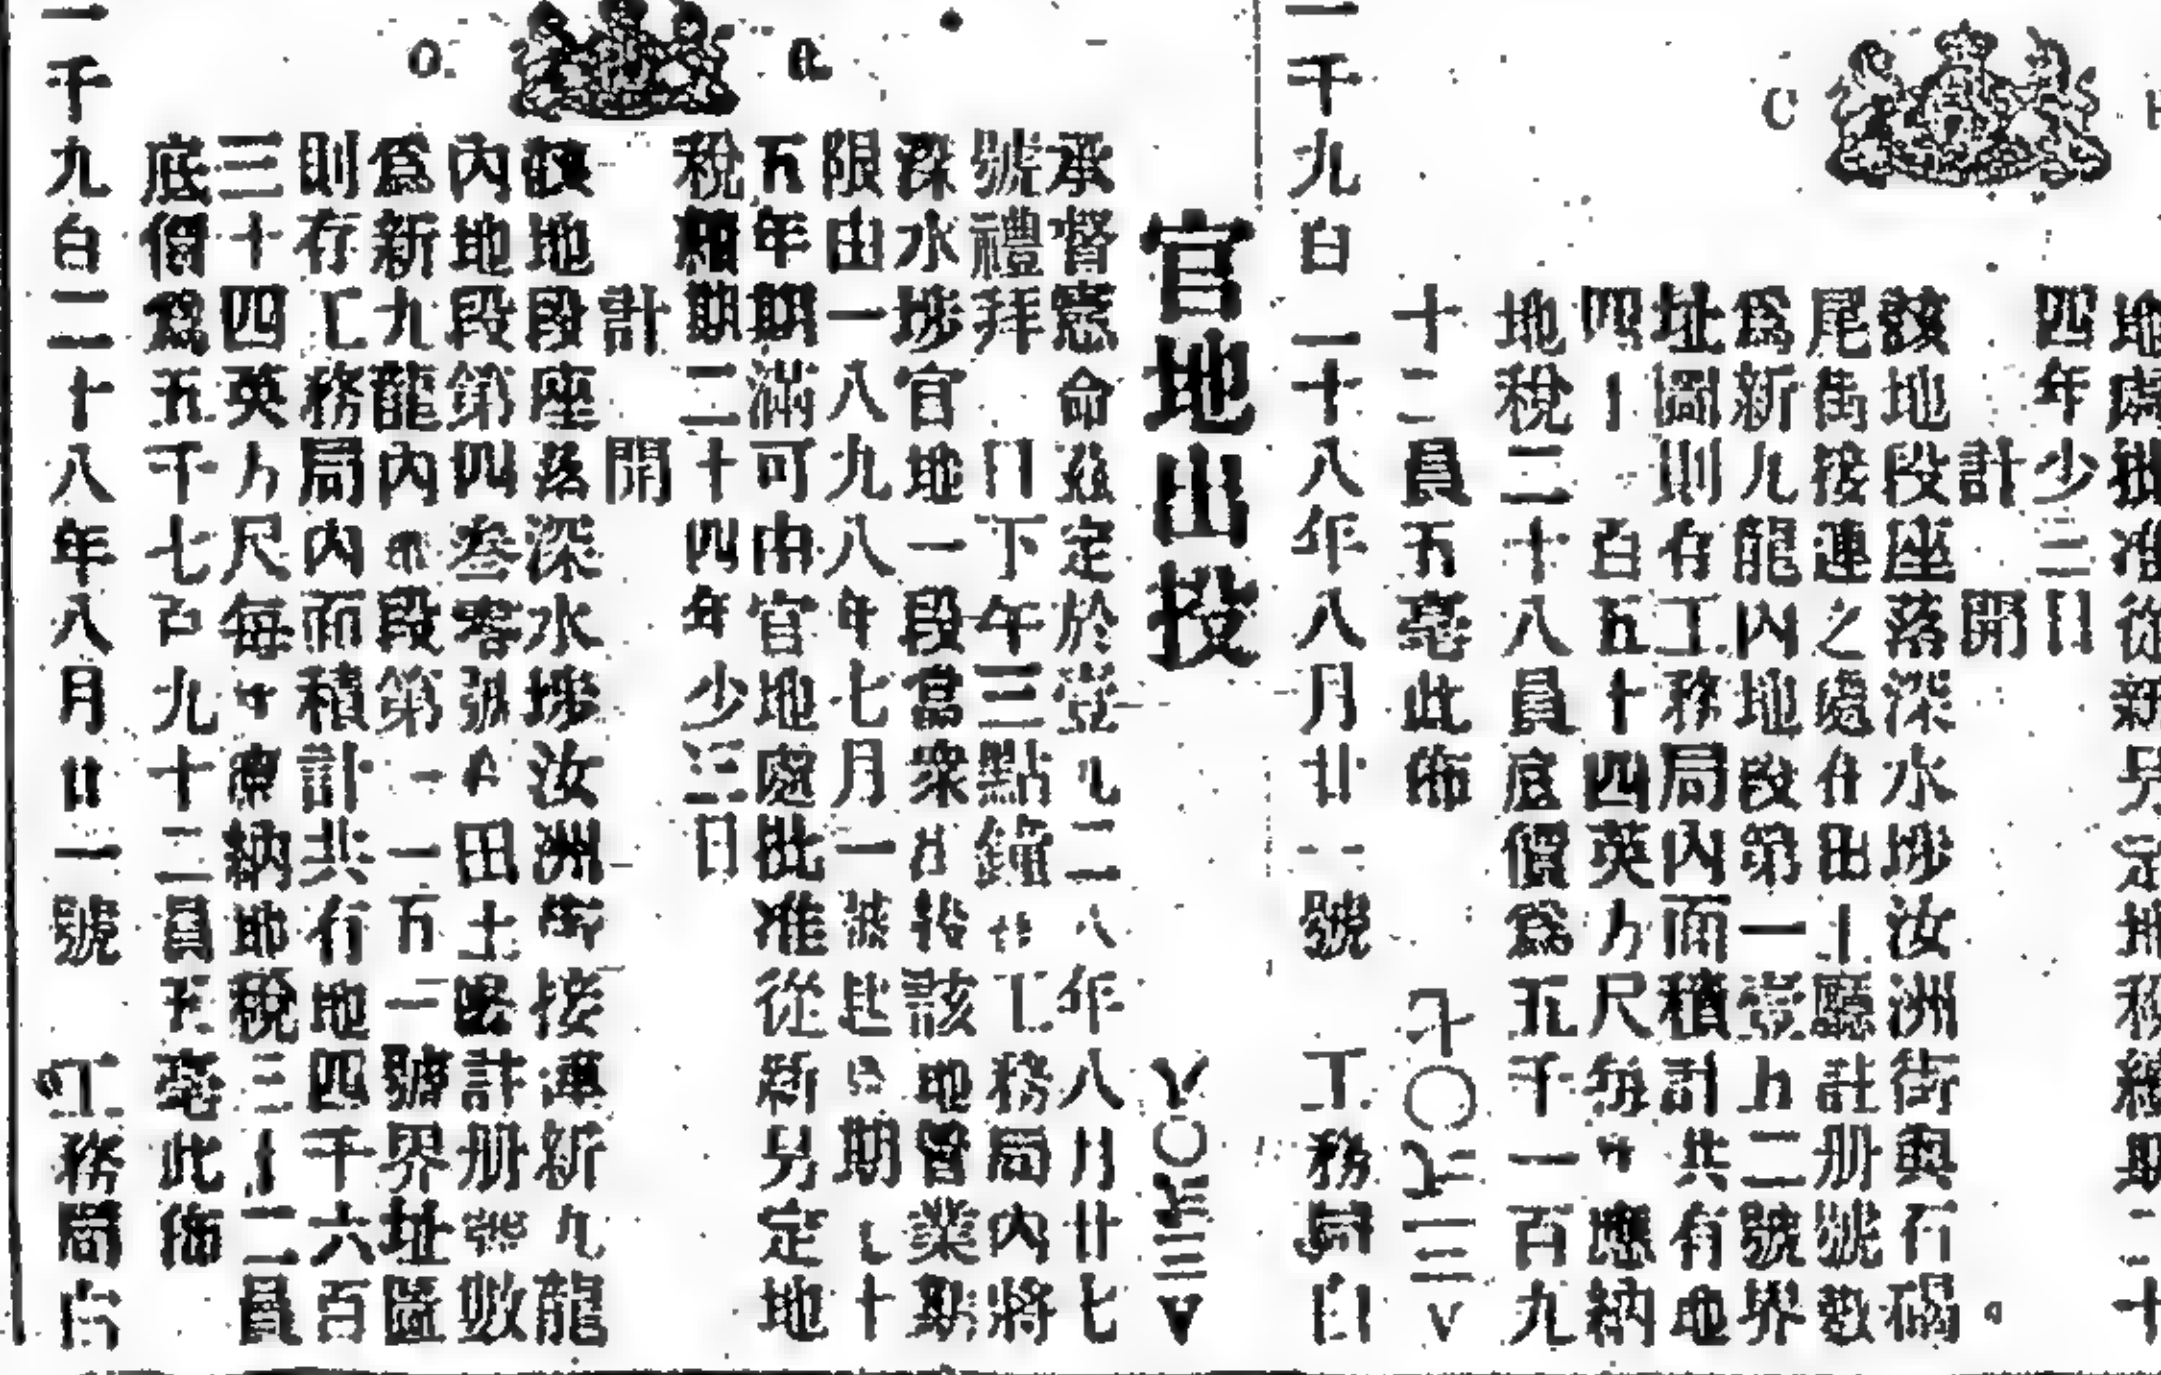 地處批准從新另定地稅續期二十
四年少三日
計開
該地段座落深水埗汝洲街與石硤
尾街接連之處在田土廳註册號數
爲新九龍內地段第一壹九二號界
址圖則存工務局內面積計共有地
四千一百五十四英方尺每年應納
地稅二十八員底價爲五千一百九
十二員五毫此佈
一千九百二十八年八月廿一號 工務局白
官地出投
承督憲命兹定於壹九二八年八月廿七
號禮拜一日下午三點鐘在工務局內將
深水埗官地一段當衆出投該地曾業期
限由一八九八年七月一號起以期七十
五年期滿可由官地處批准從新另定地
稅續期二十四年少三日
計開
該地段座落深水埗汝洲街接連新九龍
內地段第四叁零號在田土廳註册號數
爲新九龍內地段第一一五一號界址圖
則存工務局內面積計共有地四千六百
三十四英方尺每年應納地稅三十二員
底價爲五千七百九十二員五毫此佈
一千九百二十八年八月廿一號 工務局白